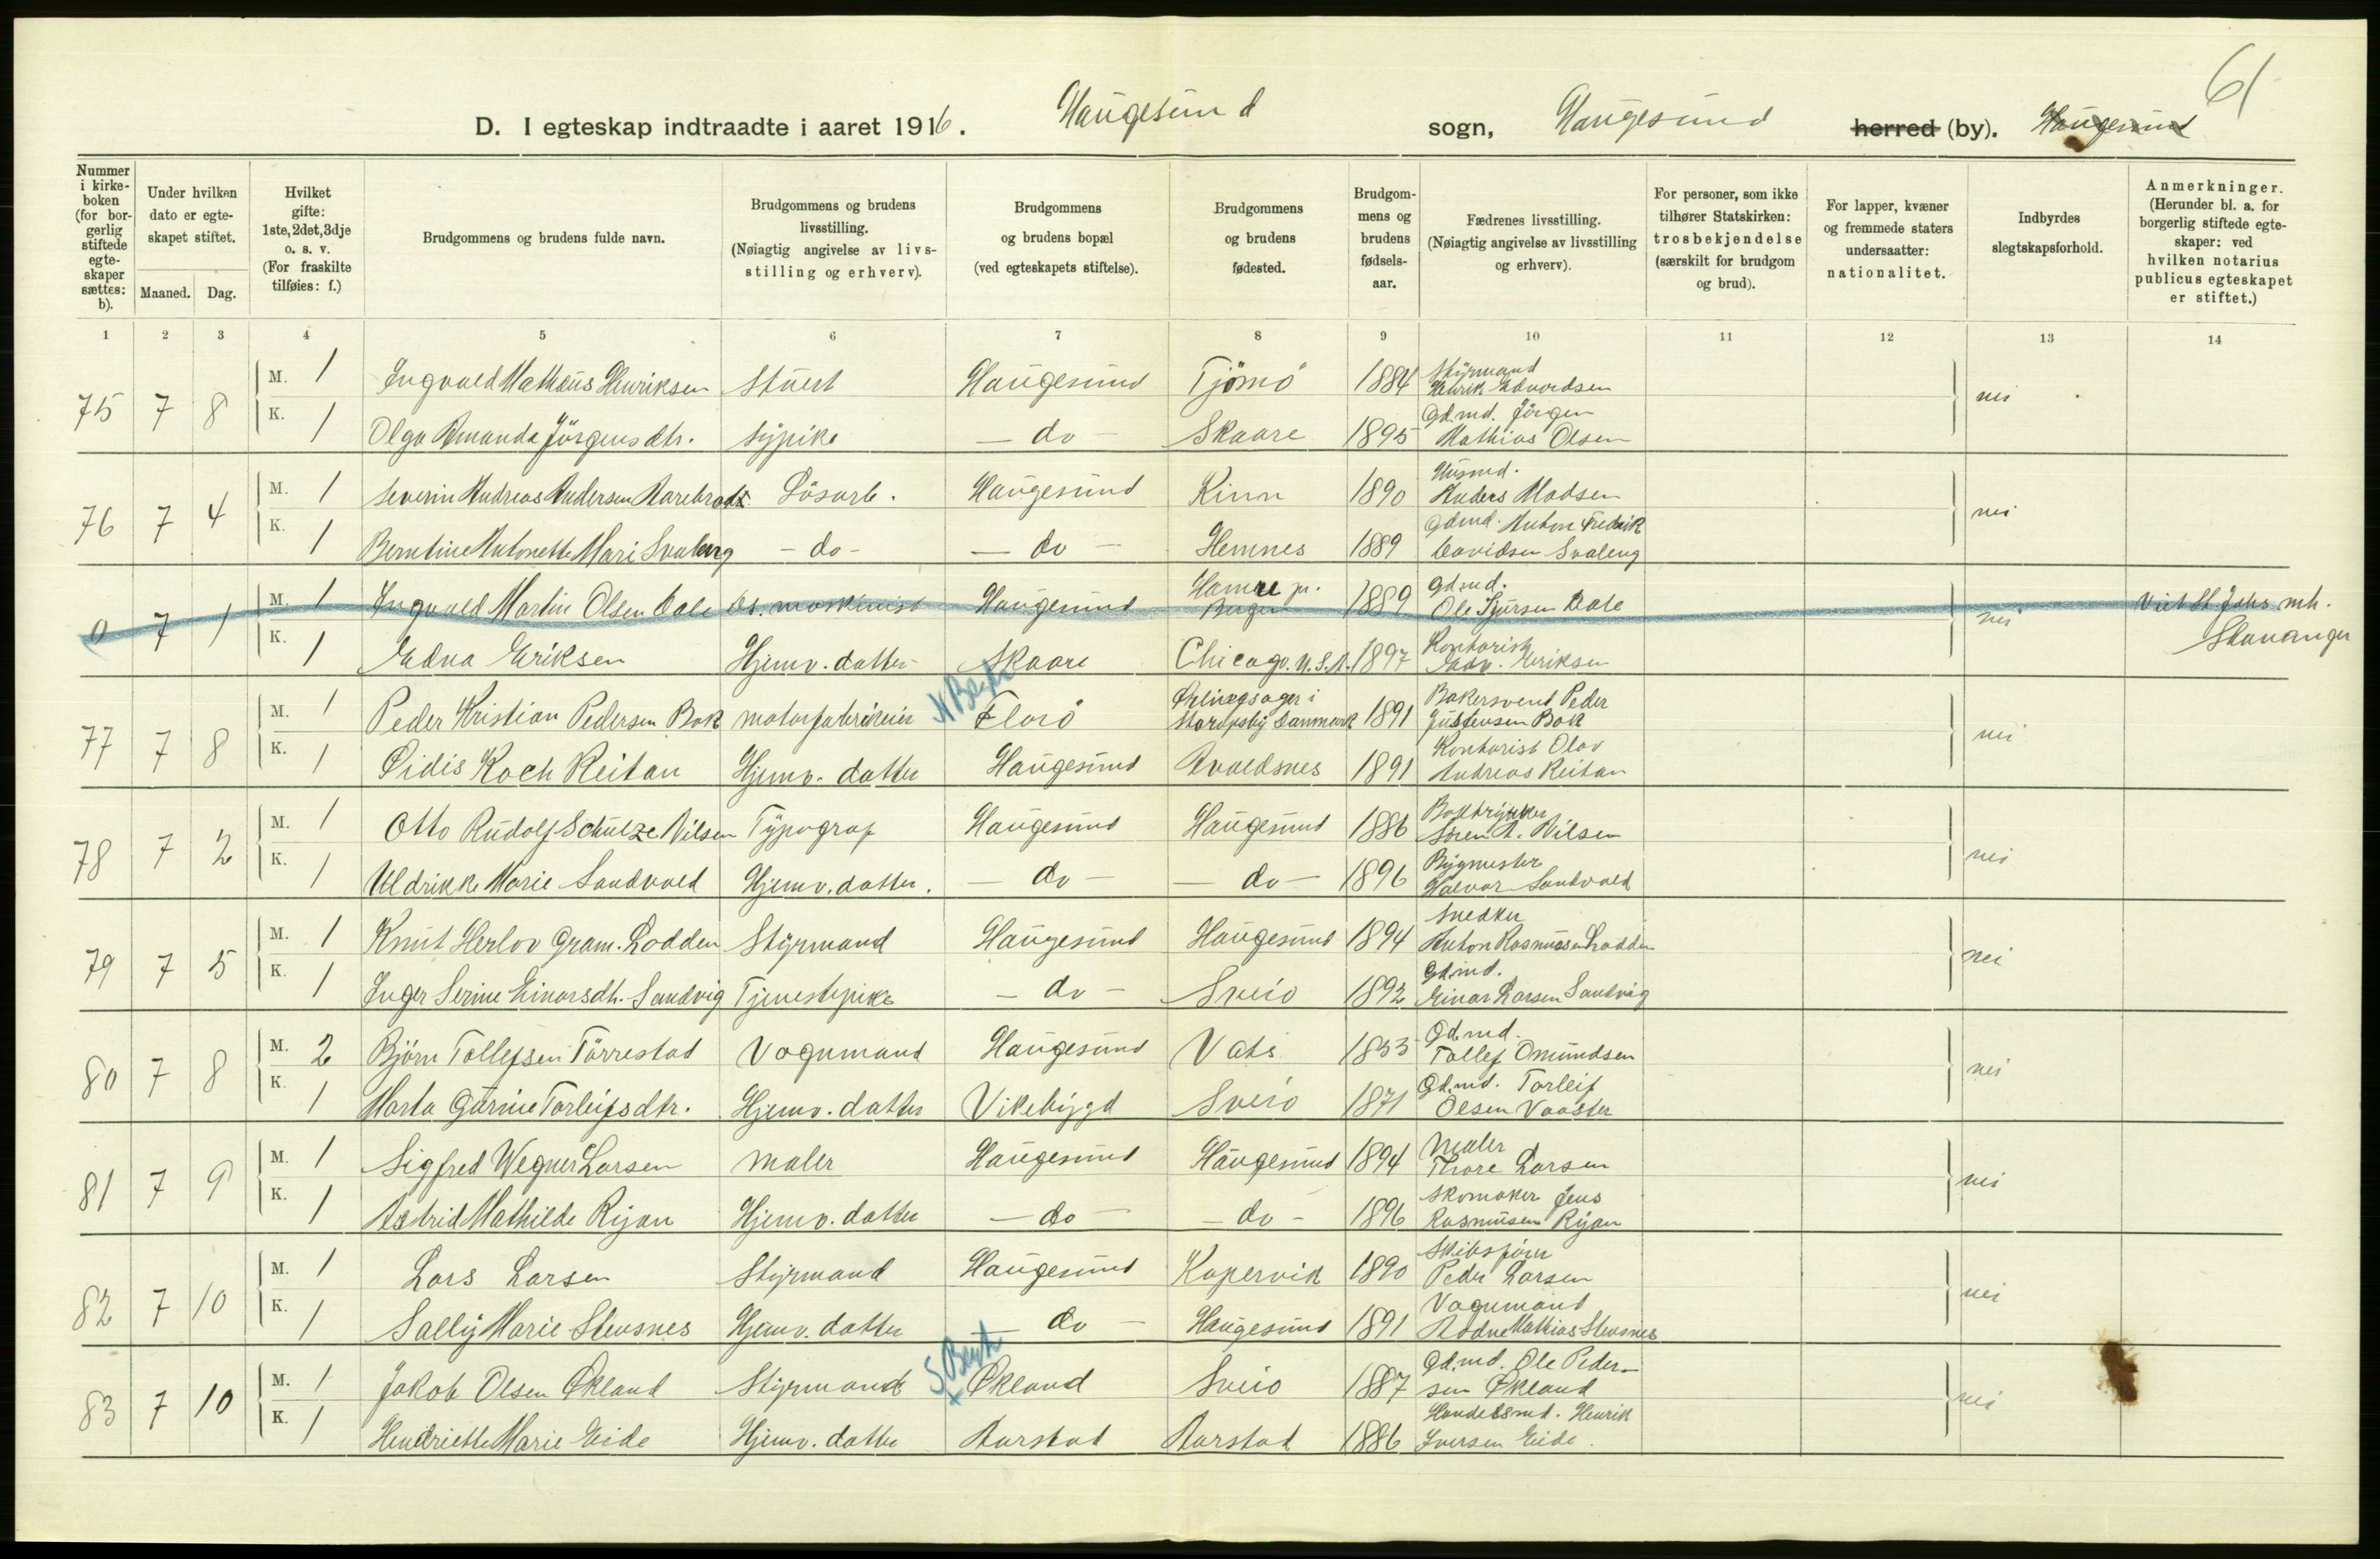 61
D. I egteskap indtraadte i aaret 1916. Haugesund sogn, Haugesund herred (by). Haugesund
Nummer i kirkeboken (for borgerlig stiftede egteskaper sættes: b).
Under hvilken dato er egteskapet stiftet.
Maaned. Dag.
Hvilket gifte: 1ste, 2det, 3dje o. s. v. (For fraskilte tilføies: f.)
Brudgommens og brudens fulde navn.
Brudgommens og brudens livsstilling. (Nøiagtig angivelse av livsstilling og erhverv).
Brudgommens og brudens bopæl (ved egteskapets stiftelse).
Brudgommens og brudens fødested.
Brudgommens og brudens fødselsaar.
Fædrenes livsstilling. (Nøiagtig angivelse av livsstilling og erhverv).
For personer, som ikke tilhører Statskirken: trosbekjendelse (særskilt for brudgom og brud).
For lapper, kvæner og fremmede staters undersaatter: nationalitet.
Indbyrdes slegtskapsforhold.
Anmerkninger. (Herunder bl. a. for borgerlig stiftede egteskaper: ved hvilken notarius publicus egteskapet er stiftet.)
1 2 3 4 5 6 7 8 9 10 11 12 13 14
75 7 8 M. 1 Ingvald Mathæus Henriksen Stuert Haugesund Tjömö 1884 Styrmand Henrik Edvardsen nei
K. 1 Olga Amanda Jörgensdtr. sypike - do - Skaare 1895 Gdmd. Jörgen Mathias Olsen
76 7 4 M. 1 Severin Andreas Andersen Rarebrodt Lösarb. Haugesund Kinn 1890 Husmd. Anders Madsen nei
K. 1 Berntine Antonette Mari Svaleng - do - - do - Hemnes 1889 Gdmd. Anton Fredrik Davidsen Svaleng
0 7 1 M. 1 Ingvald Martin Olsen Dale Ds. maskinist Haugesund Hamre pr. Bergen 1889 Gdmd. Ole Sjursen Dale nei Viet St. Johs mh. Stavanger
K. 1 Edna Eriksen Hjemv. datter Skaare Chicago. U.S.A. 1897 Kontorist Eriksen
N Bergh
77 7 8 M. 1 Peder Kristian Pedersen Bak motorfabrikeier Florö i Danmark 1891 Bakersvend Peder Justensen Bak nei
K. 1 Öidis Koch Reitan Hjemv. datter Haugesund Avaldsnes 1891 Kontorist Olav Andreas Reitan
78 7 2 M. 1 Otto Rudolf Schulze Nilsen Typograf Haugesund Haugesund 1886 Boktrykker Sören A. Nilsen nei
K. 1 Uldrikke Marie Sandvold Hjemv. datter. - do - - do - 1896 Bygmester Halvor Sandvold
79 7 5 M. 1 Knut Herlov Gram. Lodden Styrmand Haugesund Haugesund 1894 Snedker Anton Rasmussen Lodden nei
K. 1 Inger Serine Einarsdtr. Sandvig Tjenestepike - do - Sveio 1892 Gdmd. Einar Larsen Sandvig
80 7 8 M. 2 Björn Tollefsen Törrestad Vognmand Haugesund Vats 1853 Gdmd. Tollef Omundsen nei
K. 1 Marta Gurine Torleifsdtr. Hjemv. datter Vikebygd Sveio 1871 Gdmd. Torleif Olsen Vaaster
81 7 9 M. 1 Sigfred Wegner Larsen maler Haugesund Haugesund 1894 Maler Thore Larsen nei
K. 1 Astrid Mathilde Ryan Hjemv. datter - do - - do - 1896 Skomaker Jens Rasmusen Ryan
82 7 10 M. 1 Lars Larsen Styrmand Haugesund Kopervik 1890 Skibsförer Peder Larsen nei
K. 1 Sally Marie Stensnes Hjemv. datter - do - Haugesund 1891 Vognmand Rodne Mathias Stensnes
S Bergh
83 7 10 M. 1 Jakob Olsen Økland Styrmand + Økland Sveio 1887 Gd.md. Ole Pedersen Økland nei
K. 1 Hendriette Marie Eide Hjemv. datter Aarstad Aarstad 1886 Handelsmd. Henrik Iversen Eide.